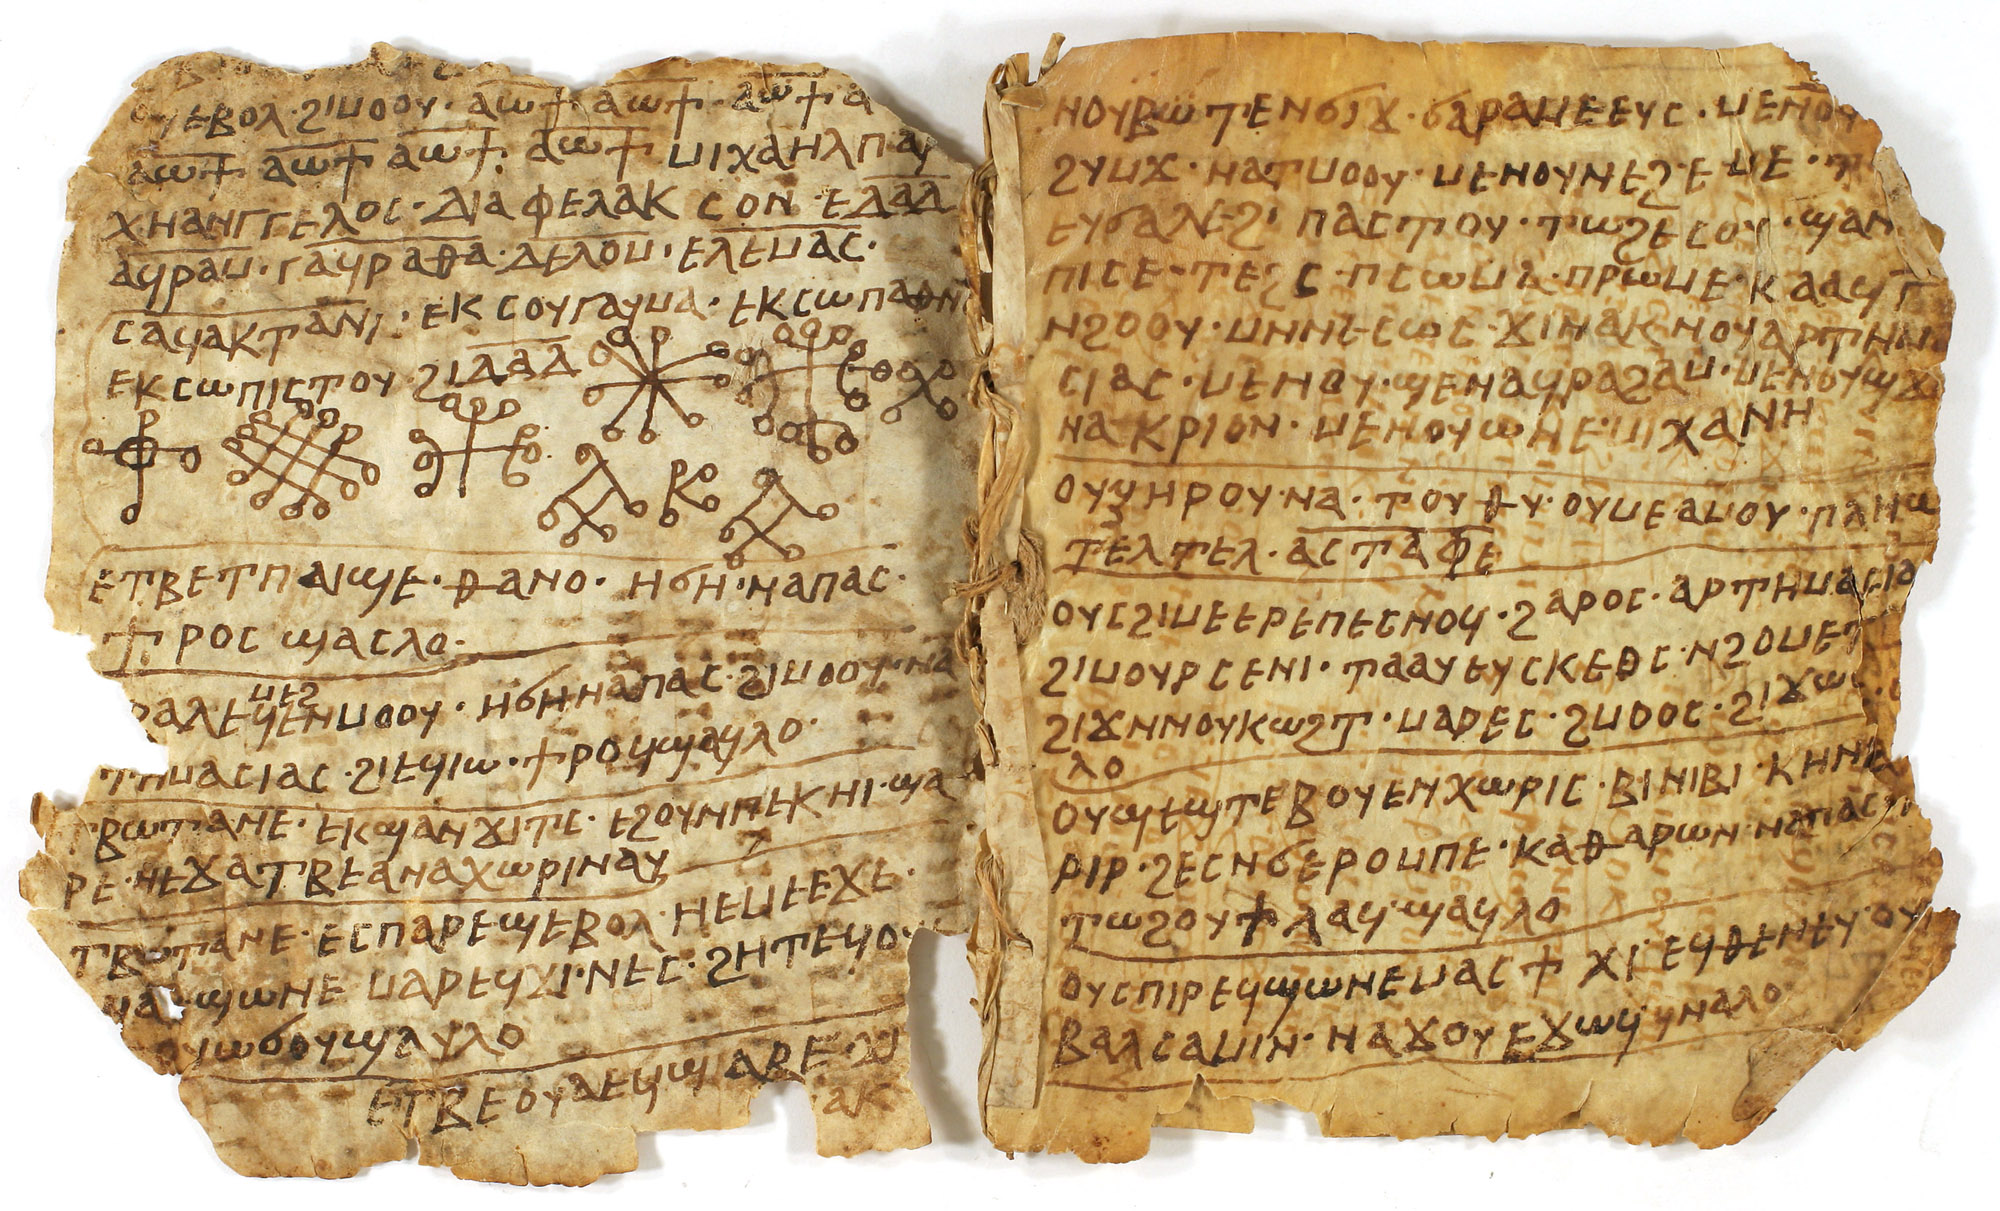 ⲩⲉⲃⲟⲗ · ϩⲓⲙⲟⲟⲩ · ⲁⲱϯ ⲁⲱϯ · ⲁⲱϯ ⲁ
ⲁⲱϯ ⲁⲱϯ ⲁⲱϯ · ⲁⲱϯ ⲙⲓⲭⲁⲏⲗ ⲡⲁⲣ
ⲭⲏⲁⲛⲅⲅⲉⲗⲟⲥ · ⲇⲓⲁⲫⲉⲗⲁⲕ ⲥⲟⲛ · ⲉⲇⲁⲇ
ⲁϥⲣⲁⲙ · ⲅⲁϥⲣⲁⲑⲁ · ⲇⲉⲗⲟⲙ · ⲉⲗⲉⲙⲁⲥ ·
ⲥⲁϥⲁⲕⲧⲁⲛⲓ · ⲉⲕⲥⲟⲩⲅⲁϥⲙⲁ · ⲉⲕⲥⲱⲡⲁⲑⲛ
ⲉⲕⲥⲱⲡⲓⲥⲧⲟⲩ ϩⲓⲇⲁⲇ
ⲉⲧⲃⲉⲧⲡⲁⲓϣⲉ · ⲑⲁⲛⲟ · ⲛϭⲏ · ⲛⲁⲡⲁⲥ ·
ϯⲣⲟⲥ ϣⲁⲥⲗⲟ ·
ⲙⲉϩ
ⲙⲟⲟⲩ · ⲛϭⲏ ⲛⲁⲡⲁⲥ · ϩⲓⲙⲟⲟⲩ · ⲛⲁ
ⲧⲏⲙⲁⲥⲓⲁⲥ · ϩⲓⲉϥⲓⲱ · ϯⲣⲟϥϣⲁϥⲗⲟ ·
ⲧⲃⲱⲧⲁⲛⲉ · ⲉⲕϣⲁⲛϫⲓⲧⲥ · ⲉϩⲟⲩⲛⲡⲉⲕⲏⲓ · ϣⲁ
ⲣⲉ · ⲛⲉϫⲁⲧⲃⲉⲁⲛⲁⲭⲱⲣⲓⲛⲁϥ
ⲧⲃⲱⲧⲁⲛⲉ · ⲉⲥⲡⲁⲣⲉϣⲉⲃⲟⲗ · ⲛⲉⲙⲉⲉⲭⲉ ·
ϣⲱⲛⲉ ⲙⲁⲣⲉϥϫⲓ · ⲛⲉⲥ · ϩⲏⲧⲉϥⲟ
ⲟⲩⲱϭⲟⲩϣⲁϥⲗⲟ
ⲉⲧⲃⲉⲟⲩⲁⲉϥϣⲁⲣⲉ
ⲁⲕ
ⲛⲟⲩⲃⲱⲧⲉⲛϭⲓϫ · ϭⲁⲣⲁⲙⲉⲉⲩⲥ · ⲙⲉⲛⲟⲩ
ϩⲩⲙϫ · ⲛⲁⲧⲙⲟⲟⲩ · ⲙⲉⲛⲟⲩⲛⲉϩ · ⲉⲙⲉ · ⲧ
ⲡⲁⲥⲧⲟⲩ · ⲧⲱϩⲉⲥⲟⲩ · ϣⲁⲛ
ⲡⲓⲥⲉ · ⲧⲉϩⲥ · ⲡⲥⲱⲙⲁ · ⲡⲣⲱⲙⲉ · ⲕⲁⲁϥ
ⲛϩⲟⲟⲩ · ⲙⲛⲛⲥⲉⲱⲥ · ϫⲓⲛⲁⲕ ⲛⲟⲩⲁⲣⲧⲏⲙ
ⲥⲓⲁⲥ · ⲙⲉⲛⲟⲩ · ϣⲉⲛⲁϥⲣⲁϩⲁⲙ · ⲙⲉⲛⲟⲩϣϫ
ⲛⲁⲕⲣⲓⲟⲛ · ⲙⲉⲛⲟⲩⲱⲛⲉ · ⲙⲓⲭⲁⲛⲏ
ⲟⲩϣⲏⲣⲟⲩ · ⲛⲁ · ⲧⲟⲩⲑⲩ · ⲟⲩⲙⲉⲁⲙⲟⲩ · ⲡⲗⲏⲛ
ⲧⲉⲗⲧⲉⲗ · ⲁⲥⲧⲁⲫⲉ
ⲟⲩⲥϩⲓⲙⲉⲉⲣⲉⲡⲉⲥⲛⲟϥ · ϩⲁⲣⲟⲥ · ⲁⲣⲧⲏⲙⲁⲥⲓⲁ
ϩⲓⲙⲟⲩⲣⲥⲉⲛⲓ · ⲧⲁⲁⲩⲉⲩⲥⲕⲉⲑⲥ · ⲛϩⲟⲙⲉⲧ
ϩⲓϫⲛⲛⲟⲩⲕⲱϩⲧ · ⲙⲁⲣⲉⲥ · ϩⲙⲟⲟⲥ · ϩⲓϫⲱⲥ
ⲗⲟ
ⲟⲩϣⲉϣⲧⲉⲃⲟⲩⲉⲛⲭⲱⲣⲓⲥ · ⲃⲓⲛⲓⲃⲓ · ⲕⲏⲛ
ⲣⲓⲣ · ϩⲉⲥⲛϭⲉⲣⲟⲙⲡⲉ · ⲕⲁⲑⲁⲣⲱⲛ · ⲛⲁⲡⲁⲥ
ⲧⲱϩⲟⲩϯⲗⲁϥ · ϣⲁϥⲗⲟ
ⲟⲩⲥⲡⲓⲣⲉϥϣⲱⲛⲉⲙⲁⲥϯ ϫⲓ · ⲉϥⲑⲉⲛⲉⲩ · ⲟⲩ
ⲃⲁⲗⲥⲁⲙⲓⲛ · ⲛⲁϫⲟⲩ ⲉϫⲱϥ · ϥⲛⲁⲗⲟ